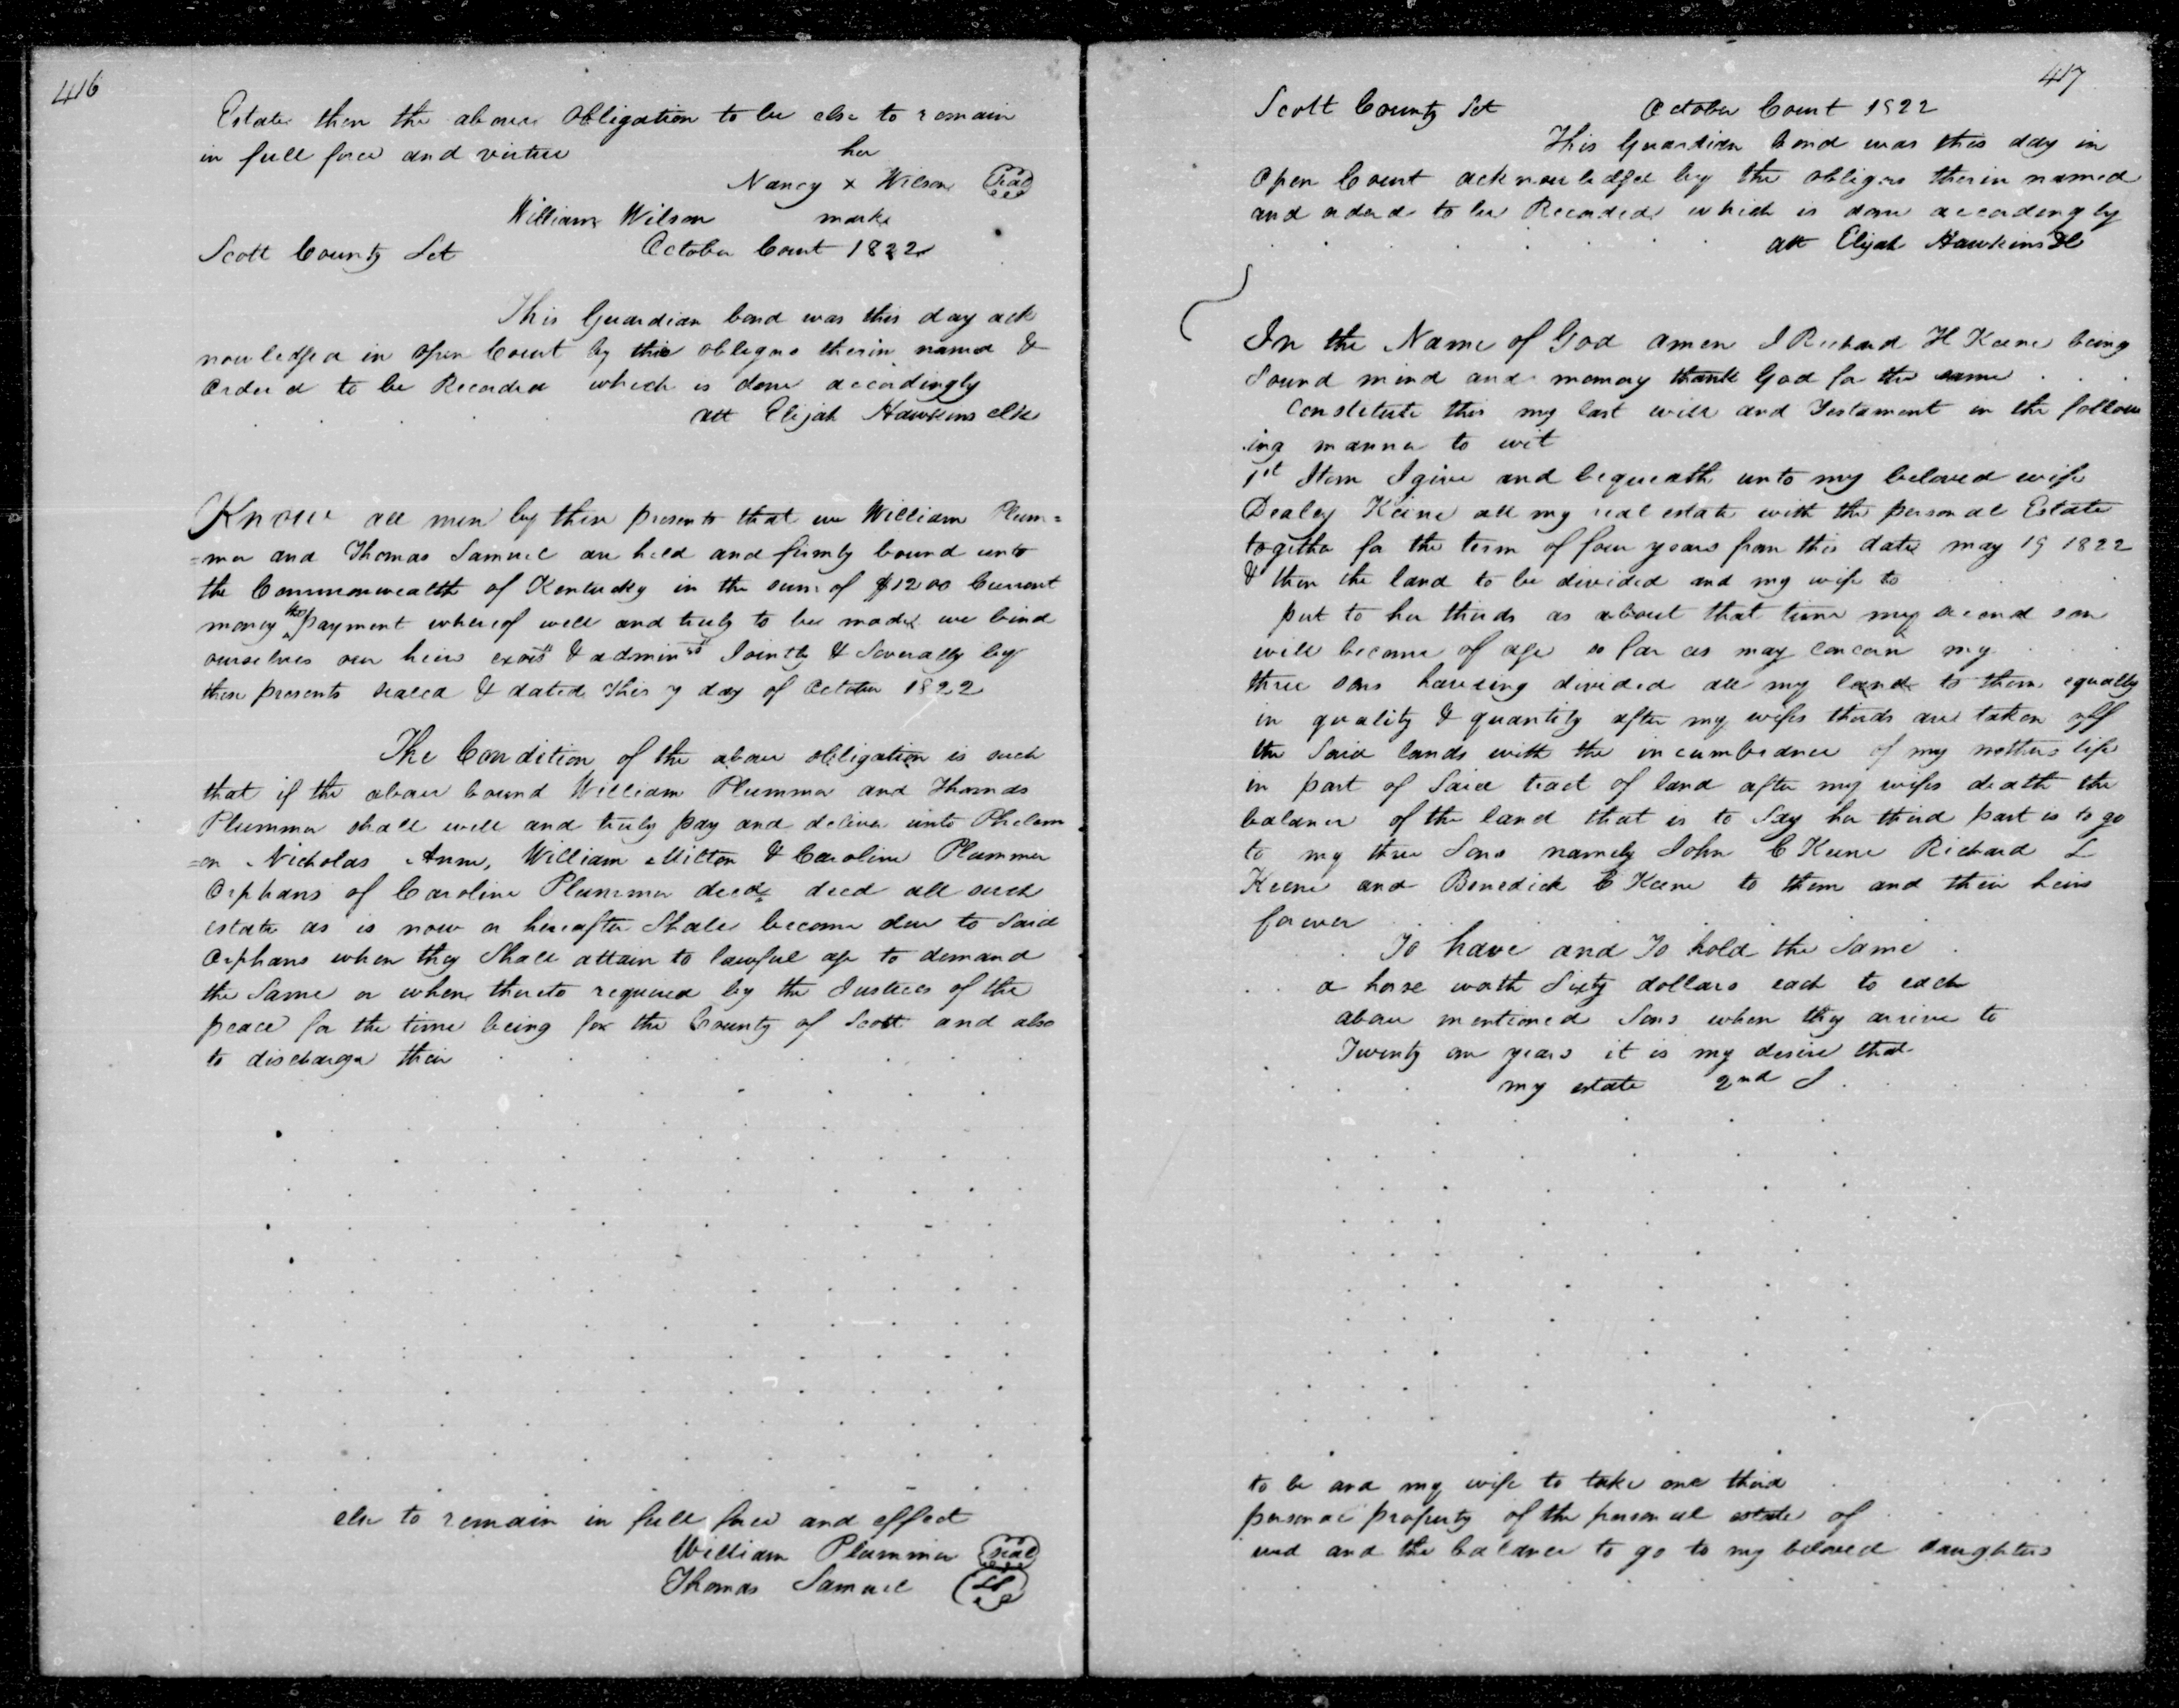 416
Estate then the above Obligation to be else to remain
in full force and virtue
her
Nancy x Wilson Seal
William Wilson mark
Scott County Sct October Court 1822
This Guardian bond was this day ack
nowledged in open Court by this obligors therin named &
Orderd to be Recorded which is done accordingly
att Elijah Hawkins clk
Know all men by these presents that we William Plum=
=mer and Thomas Samuel are held and firmly bound unto
the Commonwealth of Kentucky in the sum of $1200 Current
money the payment whereof well and truly to be made we bind
ourselves our heirs exors & admin rs Jointly & Severally by
these presents sealed & dated this 7 day of October 1822
The Condition of the above obligation is such
that if the above bound William Plummer and Thomas
Plummer shall well and truly pay and deliver unto Philem
=on Nicholas Ann, William Milton & Caroline Plummer
Orphans of Caroline Plummer decd decd all such
estate as is now or hereafter Shall become due to Said
Orphans when they Shall attain to lawful age to demand
the Same or when thereto required by the Justices of the
peace for the time being for the County of Scott and also
to discharge their
else to remain in full force and effect
William Plummer Seal
Thomas Samuel
417
Scott County Sct October Court 1822
This Guardian bond was this day in
Open Court acknowledged by the obligors therin named
and orderd to be Recorded which is done accordingly
att Elijah Hawkins Clk
In the Name of God amen I Richard H Keene being
Sound mind and memory thank God for the same
Constitute this my last will and Testament in the follow
ing manner to wit
1st Item I give and bequeath unto my beloved wife
Dealey Keene all my real estate with the personal Estate
together for the term of four years from this date may 19 1822
& then the land to be divided and my wife to
put to her thirds as about that time my second son
will become of age so far as may concern my
three sons haveing divided all my land to them equally
in quality & quantity after my wifes thirds are taken off
the Said lands with the incumbrance of my mothers life
in part of Said tract of land after my wifes death the
balance of the land that is to Say her third part is to go
to my three Sons namely John C Keene Richard L
Keene and Benedick C Keene to them and their heirs
forever
To have and To hold the Same
a horse worth Sixty dollars each to each
above mentioned Sons when they arrive to
Twenty one years it is my desire that
my estate 2nd I
to be and my wife to take one third
personal property of the personal estate of
and the balance to go to my beloved daughters